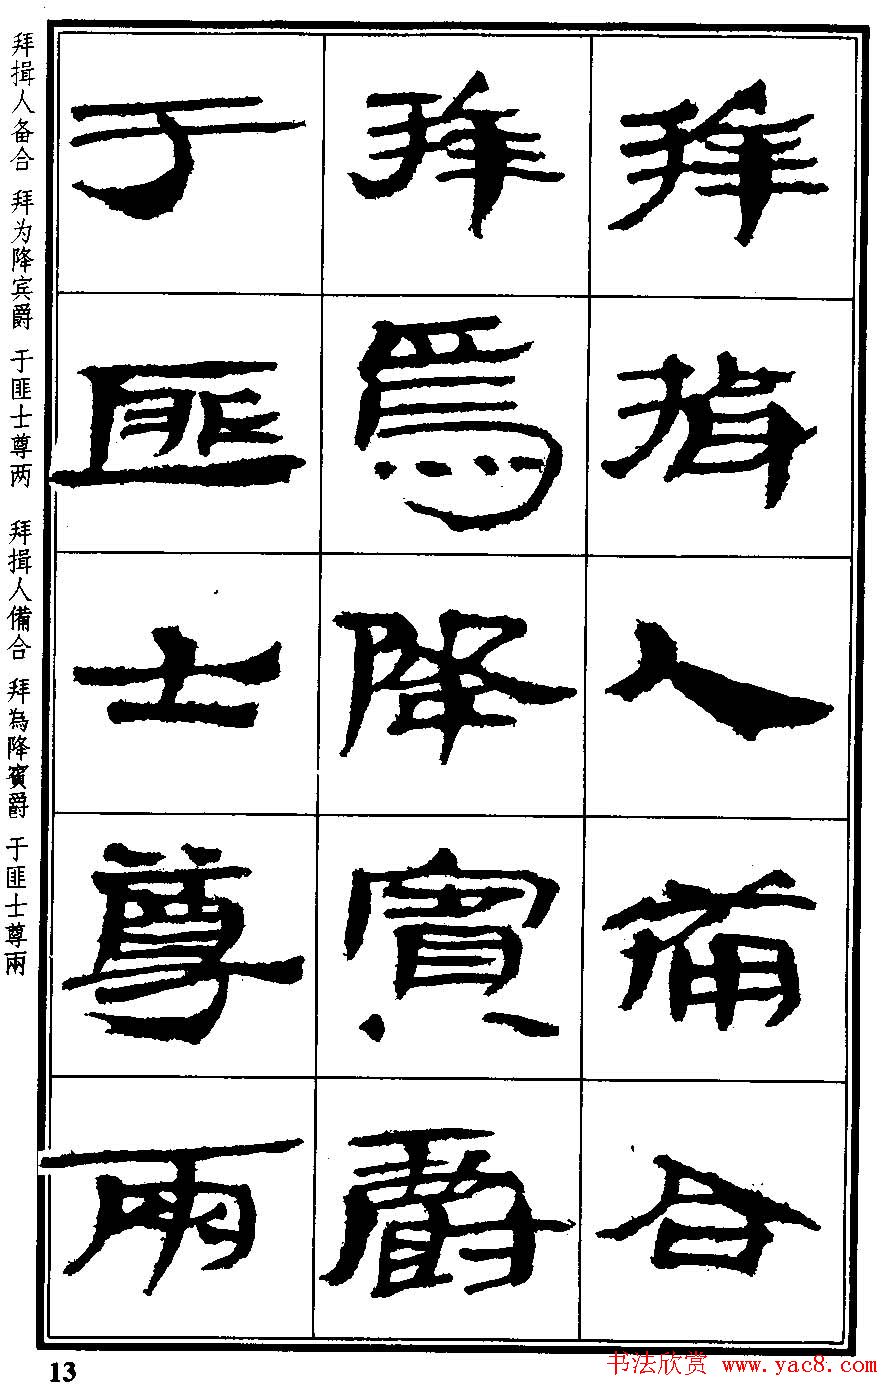 拜揖人备合 拜为降宾爵 于匪士尊两 拜揖人備合 拜為降賓爵 于匪士尊兩
拜揖人備合
拜為降賓爵
于匪士尊兩
13
书法欣赏 www.yac8.com